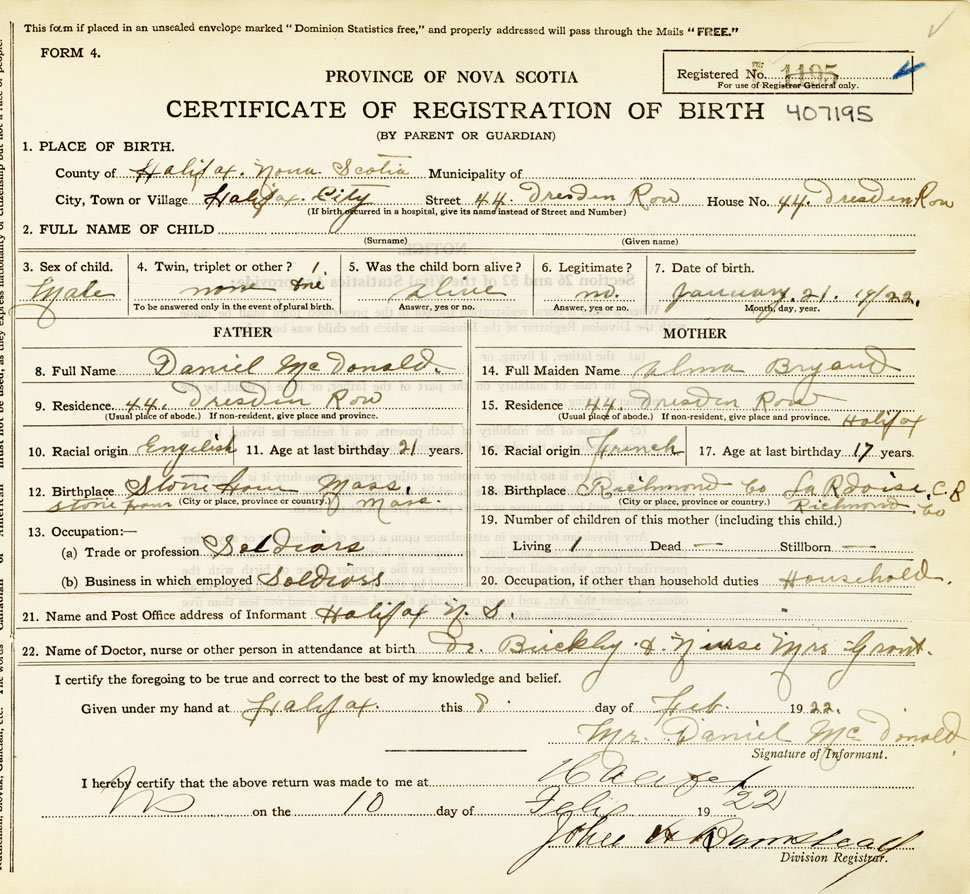 This form if placed in an unsealed envelope marked "Dominion Statistics free," and properly addressed will pass through the Mails "FREE."
FORM 4.
Registered No. 1195
For use of Registrar General only.
PROVINCE OF NOVA SCOTIA
CERTIFICATE OF REGISTRATION OF BIRTH 407195
(BY PARENT OR GUARDIAN)
1. PLACE OF BIRTH.
County of Halifax. Nova Scotia Municipality of
City, Town or Village Halifax. City Street 44. Dresden Row House No. 44. Dresden Row
(If birth occurred in a hospital, give its name instead of Street and Number)
2. FULL NAME OF CHILD
(Surname) (Given name)
3. Sex of child. 4. Twin, triplet or other? 1 5. Was the child born alive? 6. Legitimate? 7. Date of birth.
Male none alive no. January. 21. 1922.
To be answered only in the event of plural birth. Answer, yes or no. Answer, yes or no. Month, day, year.
FATHER MOTHER
8. Full Name Daniel McDonald. 14. Full Maiden Name Alma Bryand
9. Residence 44. Dresden Row 15. Residence 44. Dresden Row
(Usual place of abode.) If non-resident, give place and province. (Usual place of abode.) If non-resident, give place and province. Halifax
10. Racial origin Engelish 11. Age at last birthday 21 years. 16. Racial origin French 17. Age at last birthday 17 years.
12. Birthplace Mass. 18. Birthplace Richmond Co LaRdoise, C.B
(City or place, province or country.) Mass. (City or place, province or country.) Richmond Co
13. Occupation:— 19. Number of children of this mother (including this child.)
(a) Trade or profession Soldiars Living 1 Dead — Stillborn —
(b) Business in which employed Soldiors 20. Occupation, if other than household duties Household.
21. Name and Post Office address of Informant Halifax N. S.
22. Name of Doctor, nurse or other person in attendance at birth Dr. Buckly & Nurse Mrs Grant.
I certify the foregoing to be true and correct to the best of my knowledge and belief.
Given under my hand at Halifax. this 8. day of Feb. 1922.
Mr. Daniel McDonald.
Signature of Informant.
I hereby certify that the above return was made to me at Halifax
NS on the 10 day of Feb 19 22
John A
Division Registrar.